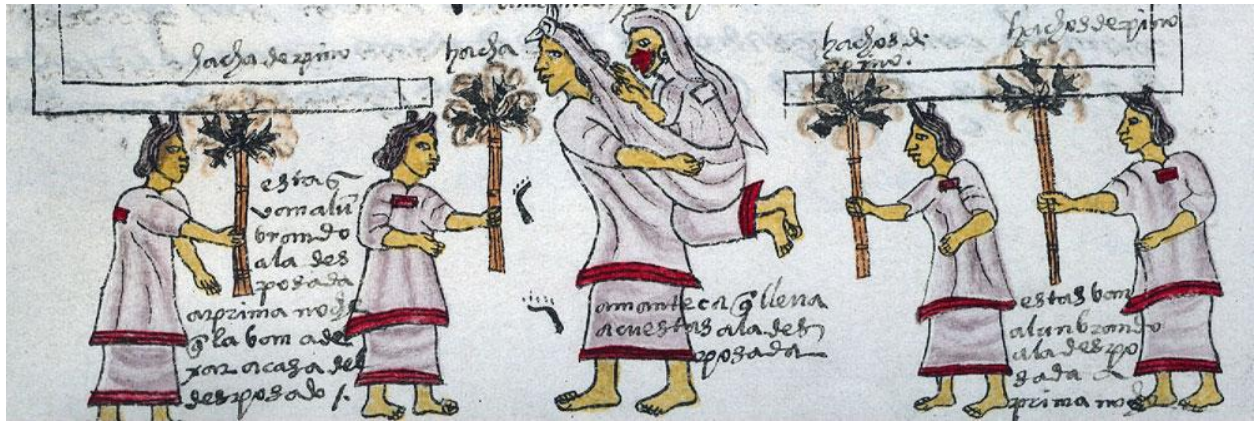 hacha de pino
hacha
hachos de
pino.
hachos de pino
estas
van alũ
brando
a la des
posada
a prima noche
q̃ la van a de
xar a casa del
desposado /.
amanteca q̃ lleva
a cuestas a la des
posada
estas van
alunbrando
a la despo
sada a
prima noche